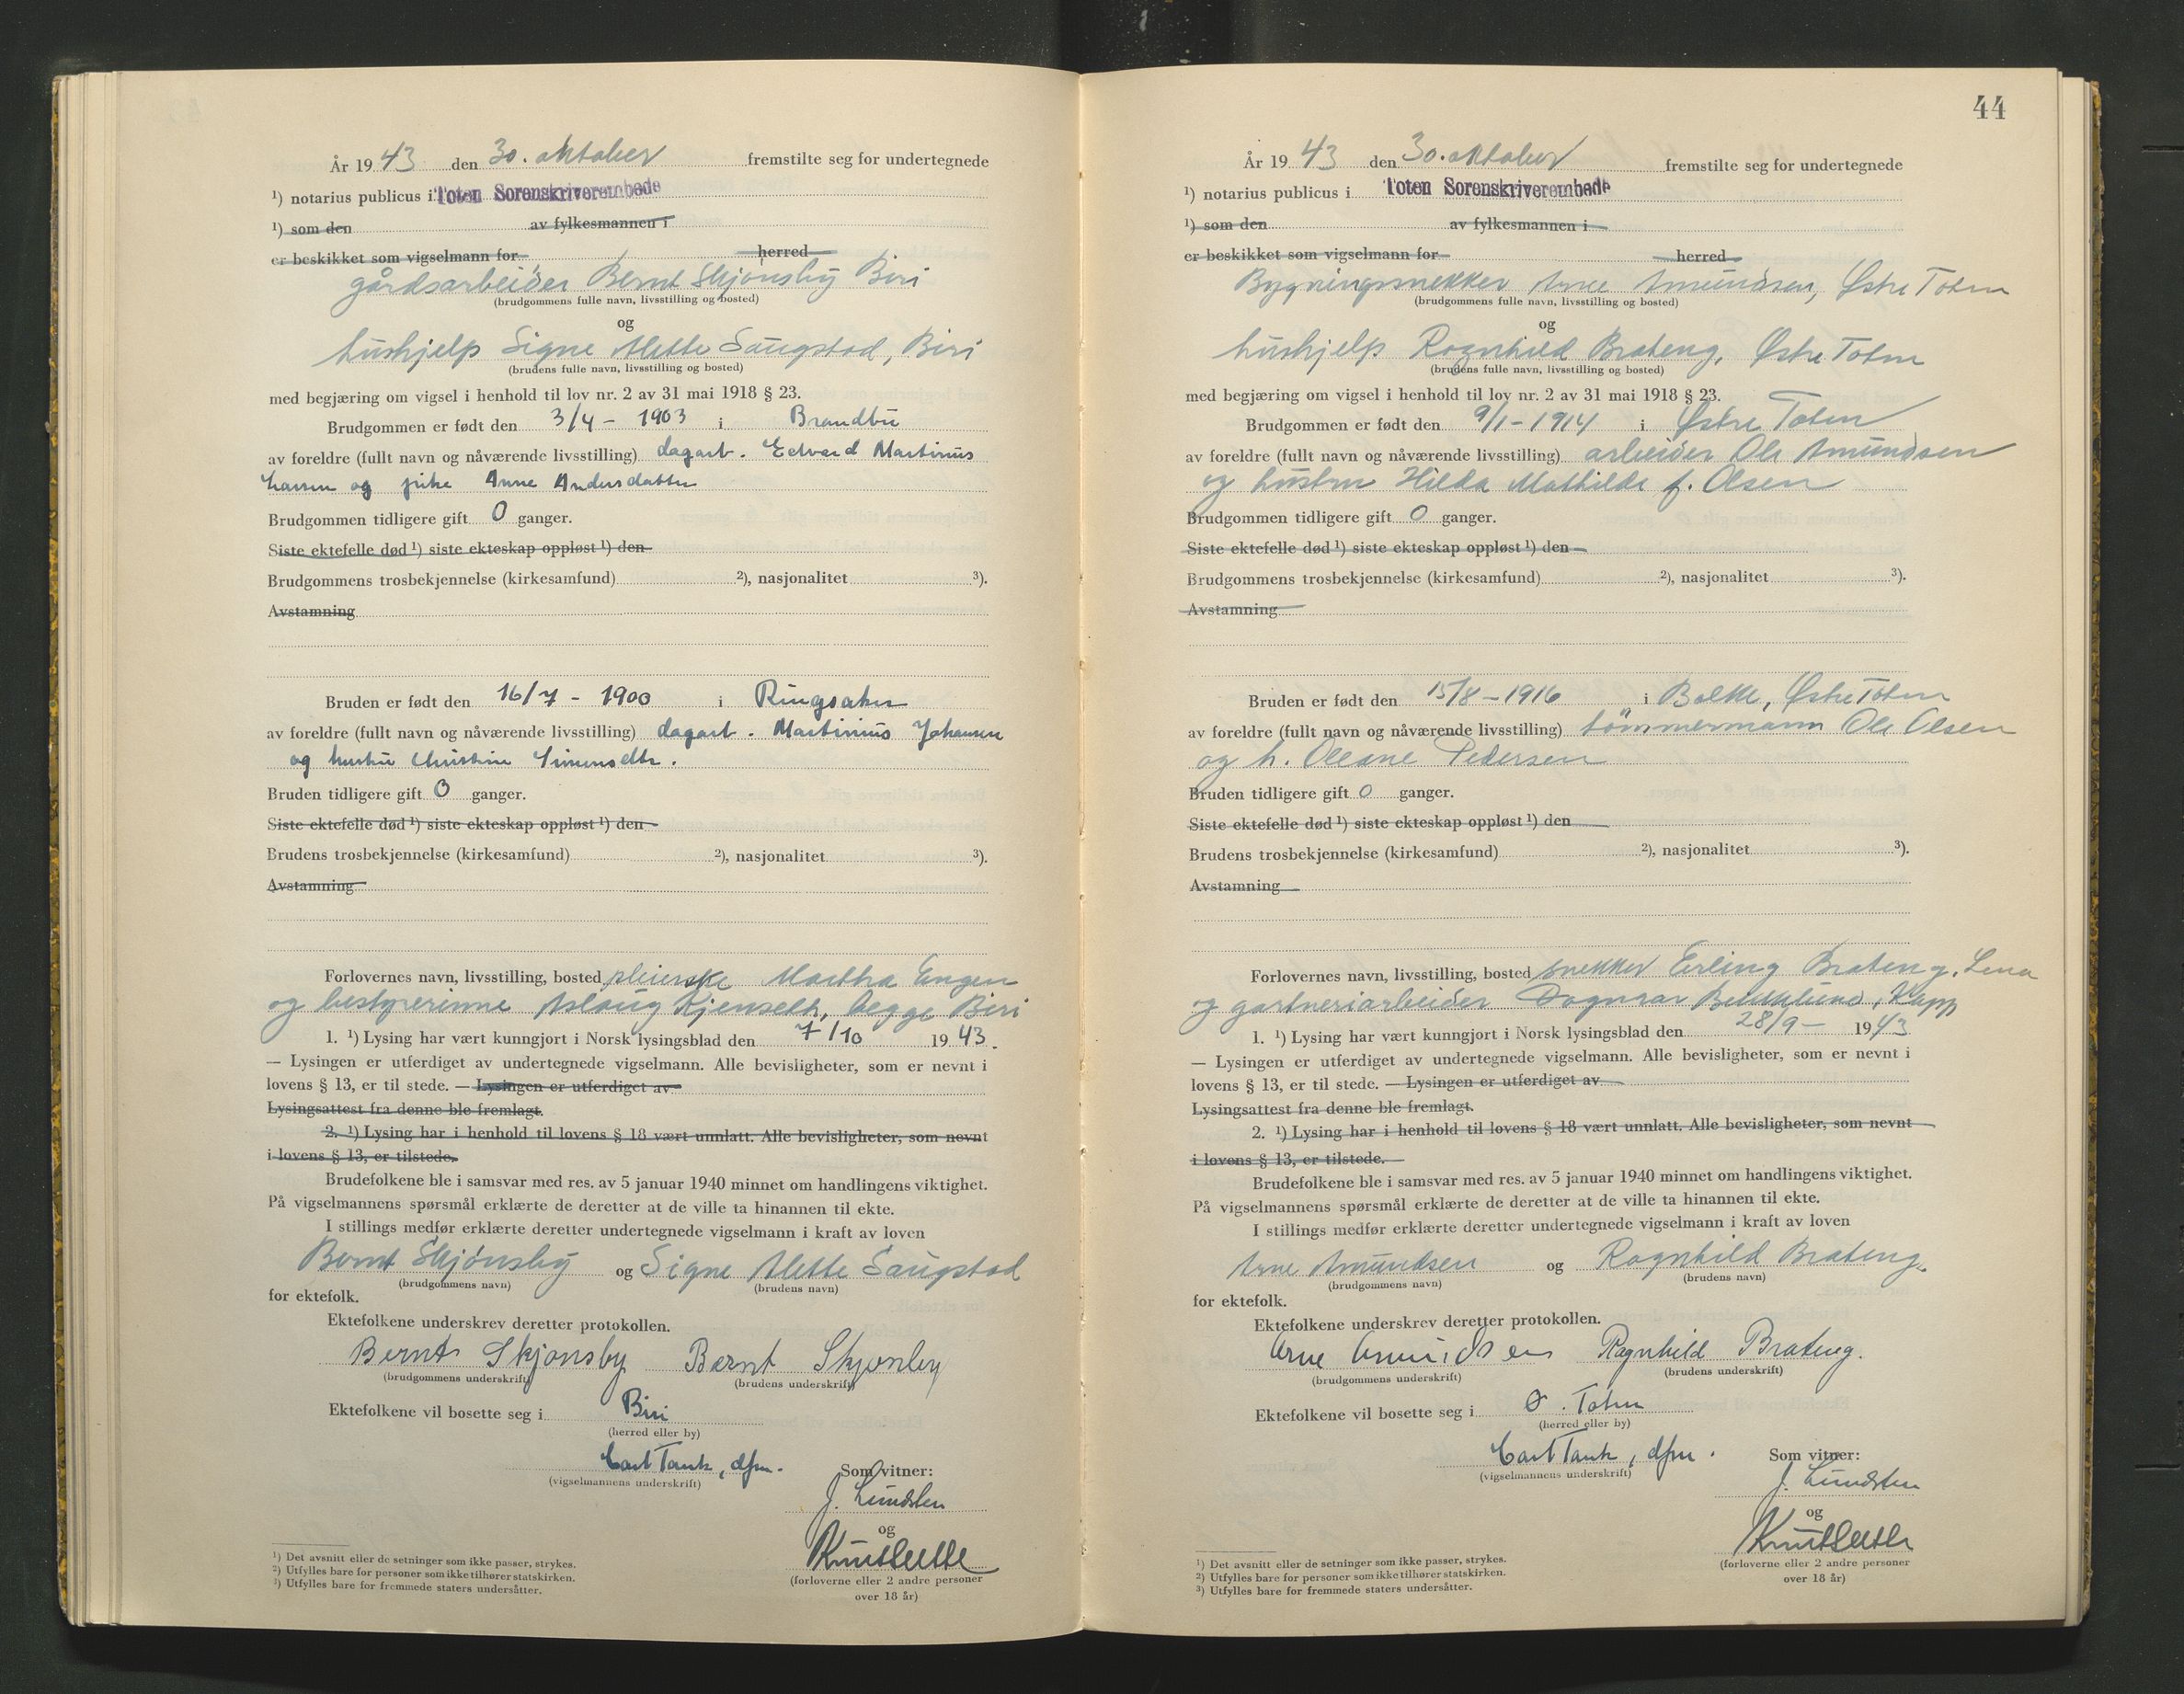 År 19 43 den 30. oktober fremstilte seg for undertegnede
¹) notarius publicus i Toten Sorenskriverembede
¹) som den av fylkesmannen i
er beskikket som vigselmann for herred
gårdsarbeider Bernt Skjønsby Biri
(brudgommens fulle navn, livsstilling og bosted)
og
hushjelp Signe Alette Saugstad, Biri
(brudens fulle navn, livsstilling og bosted)
med begjæring om vigsel i henhold til lov nr. 2 av 31 mai 1918 § 23.
Brudgommen er født den 3/4 - 1903 i Brandbu
av foreldre (fullt navn og nåværende livsstilling) dagarb. Edvard Martinius
Larsen og pike Anne Andersdatter
Brudgommen tidligere gift 0 ganger.
Siste ektefelle død ¹) siste ekteskap oppløst ¹) den
Brudgommens trosbekjennelse (kirkesamfund) ²), nasjonalitet ³).
Avstamning
Bruden er født den 16/7 - 1900 i Ringsaker
av foreldre (fullt navn og nåværende livsstilling) dagarb. Martinius Johansen
og hustru Christine Simensdtr.
Bruden tidligere gift 0 ganger.
Siste ektefelle død ¹) siste ekteskap oppløst ¹) den
Brudens trosbekjennelse (kirkesamfund) ²), nasjonalitet ³).
Avstamning
Forlovernes navn, livsstilling, bosted pleierske Martha Engen
og bestyrerinne Aslaug Kjenseth, begge Biri
1. ¹) Lysing har vært kunngjort i Norsk lysingsblad den 7/10 19 43.
— Lysingen er utferdiget av undertegnede vigselmann. Alle bevisligheter, som er nevnt i
lovens § 13, er til stede. — Lysingen er utferdiget av
Lysingsattest fra denne ble fremlagt.
2. ¹) Lysing har i henhold til lovens § 18 vært unnlatt. Alle bevisligheter, som nevnt
i lovens § 13, er tilstede.
Brudefolkene ble i samsvar med res. av 5 januar 1940 minnet om handlingens viktighet.
På vigselmannens spørsmål erklærte de deretter at de ville ta hinannen til ekte.
I stillings medfør erklærte deretter undertegnede vigselmann i kraft av loven
Bernt Skjønsby og Signe Alette Saugstad
(brudgommens navn) (brudens navn)
for ektefolk.
Ektefolkene underskrev deretter protokollen.
Bernt Skjønsby Bernt Skjønsby
(brudgommens underskrift) (brudens underskrift)
Ektefolkene vil bosette seg i Biri
(herred eller by)
Carl Tank, dfm.
(vigselmannens underskrift)
Som vitner:
J. Lundsten
og
Knut
(forloverne eller 2 andre personer
over 18 år)
¹) Det avsnitt eller de setninger som ikke passer, strykes.
²) Utfylles bare for personer som ikke tilhører statskirken.
³) Utfylles bare for fremmede staters undersåtter.
44
År 19 43 den 30. oktober fremstilte seg for undertegnede
¹) notarius publicus i Toten Sorenskriverembede
¹) som den av fylkesmannen i
er beskikket som vigselmann for herred
Bygningssnekker Arne Amundsen, Østre Toten
(brudgommens fulle navn, livsstilling og bosted)
og
hushjelp Ragnhild Brateng, Østre Toten
(brudens fulle navn, livsstilling og bosted)
med begjæring om vigsel i henhold til lov nr. 2 av 31 mai 1918 § 23.
Brudgommen er født den 9/1 - 1914 i Østre Toten
av foreldre (fullt navn og nåværende livsstilling) arbeider Ole Amundsen
og hustru Hilda Mathilde f. Olsen
Brudgommen tidligere gift 0 ganger.
Siste ektefelle død ¹) siste ekteskap oppløst ¹) den
Brudgommens trosbekjennelse (kirkesamfund) ²), nasjonalitet ³).
Avstamning
Bruden er født den 15/8 - 1916 i Balke, Østre Toten
av foreldre (fullt navn og nåværende livsstilling) tømmermann Ole Olsen
og h. Oleane Pedersen
Bruden tidligere gift 0 ganger.
Siste ektefelle død ¹) siste ekteskap oppløst ¹) den
Brudens trosbekjennelse (kirkesamfund) ²), nasjonalitet ³).
Avstamning
Forlovernes navn, livsstilling, bosted snekker Erling Brateng, Lena
og gartneriarbeider Dagmar Bekkelund, Kapp
1. ¹) Lysing har vært kunngjort i Norsk lysingsblad den 28/9 - 19 43
— Lysingen er utferdiget av undertegnede vigselmann. Alle bevisligheter, som er nevnt i
lovens § 13, er til stede. — Lysingen er utferdiget av
Lysingsattest fra denne ble fremlagt.
2. ¹) Lysing har i henhold til lovens § 18 vært unnlatt. Alle bevisligheter, som nevnt
i lovens § 13, er tilstede.
Brudefolkene ble i samsvar med res. av 5 januar 1940 minnet om handlingens viktighet.
På vigselmannens spørsmål erklærte de deretter at de ville ta hinannen til ekte.
I stillings medfør erklærte deretter undertegnede vigselmann i kraft av loven
Arne Amundsen og Ragnhild Brateng.
(brudgommens navn) (brudens navn)
for ektefolk.
Ektefolkene underskrev deretter protokollen.
Arne Amundsen Ragnhild Brateng.
(brudgommens underskrift) (brudens underskrift)
Ektefolkene vil bosette seg i Ø. Toten
(herred eller by)
Carl Tank, dfm.
(vigselmannens underskrift)
Som vitner:
J. Lundsten
og
Knut
(forloverne eller 2 andre personer
over 18 år)
¹) Det avsnitt eller de setninger som ikke passer, strykes.
²) Utfylles bare for personer som ikke tilhører statskirken.
³) Utfylles bare for fremmede staters undersåtter.